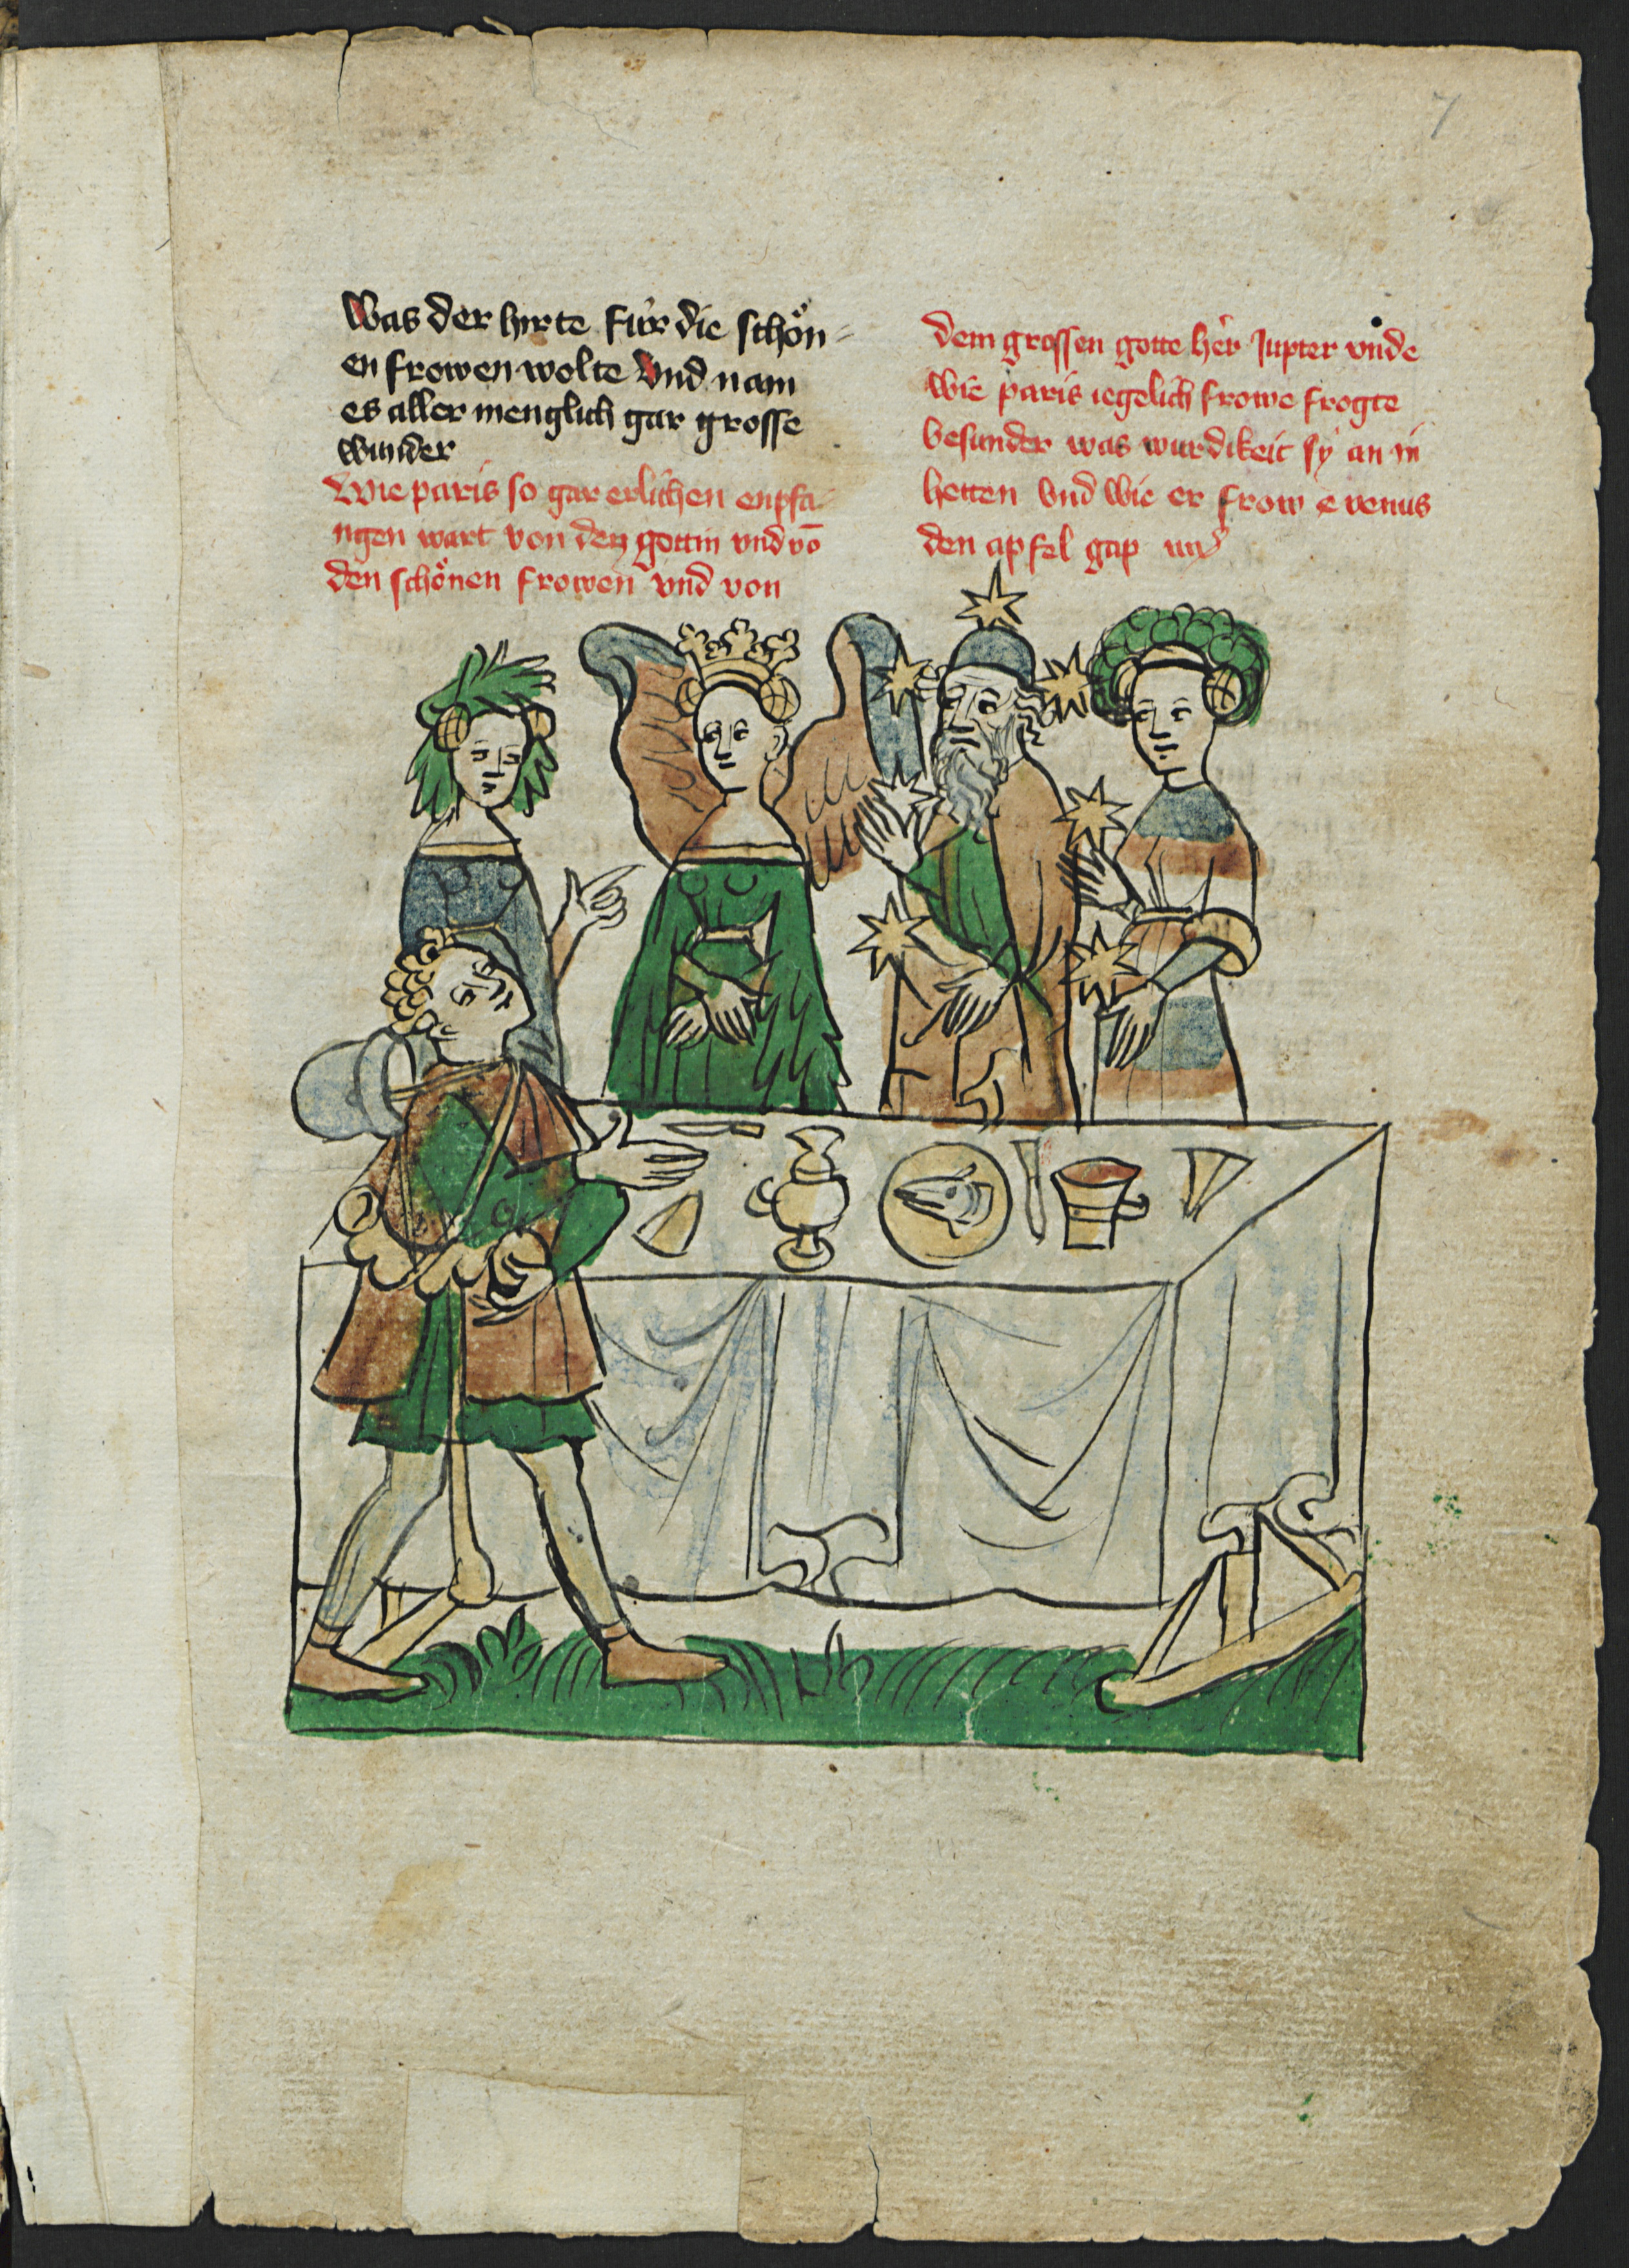 7
Was der hirte für die schön-
en frowen wolte Vnd nam
es aller menglich gar grosse
wunder
Wie paris so gar erlichen enpfa-
ngen wart von den gottin vnd vō
den schönen frowen vnd von
dem grossen gotte her Jupter vnde
wie paris iegelich frowe frogte
besunder was wurdikeit sy an in
hetten Vnd wie er frowe venus
den apfel gap